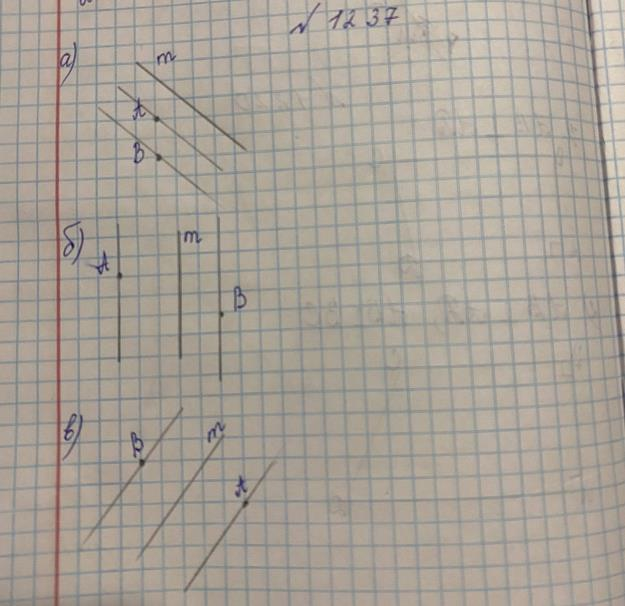 № 1237
а)
m
A
B
б)
m
A
B
в)
B
m
A